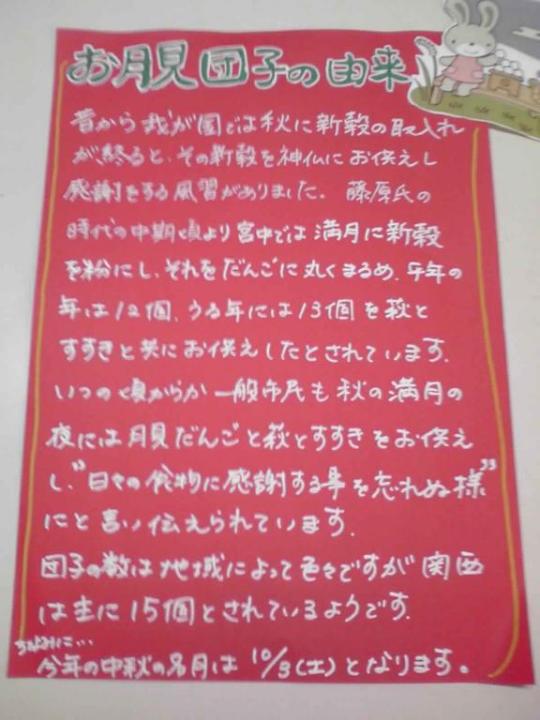 お月見団子の由来
昔から我が国では秋に新穀の取入れ
が終ると、その新穀を神仏にお供えし
感謝をする風習がありました。藤原氏の
時代の中期頃より宮中では満月に新穀
を粉にし、それをだんごに丸くまるめ、平年の
年は12個、うる年には13個を萩と
すすきと共にお供えしたとされています。
いつの頃からか一般市民も秋の満月の
夜には月見だんごと萩とすすきをお供え
し、"日々の食物に感謝する事を忘れぬ様"
にと言い伝えられています。
団子の数は地域によって色々ですが関西
は主に15個とされているようです。
ちなみに…
今年の中秋の名月は10/3(土)となります。